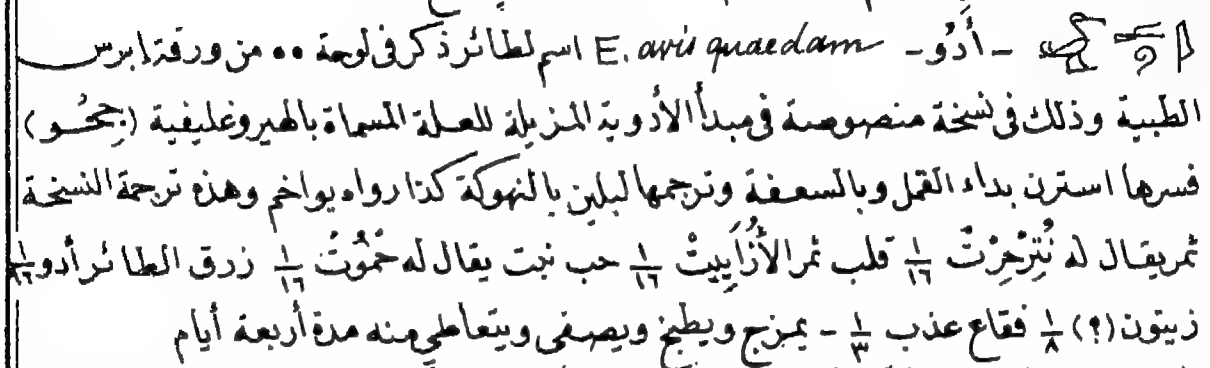 - أَدُو - E. avis quaedam اسم لطائر ذكر فى لوحة ٥٥ من ورقة إبرس
الطبية وذلك فى نسخة منصوصة فى مبدأ الأدوية المزيلة للعلة المسماة بالهيروغليفية (جحُو)
فسرها استرن بداء القمل وبالسعفة وترجمها لبلين بالنهوكة كذا رواه يواخم وهذه ترجمة النسخة
ثمر يقال له ١/١٦ قلب ثمر ١/١٦ حب نبت يقال له خمُوتُ ١/١٦ زرق الطائر أدو ١/١٦
زيتون (؟) ١/٨ فقاع عذب ١/٣ - يمزج ويطبخ ويصفى ويتعاطى منه مدة أربعة أيام